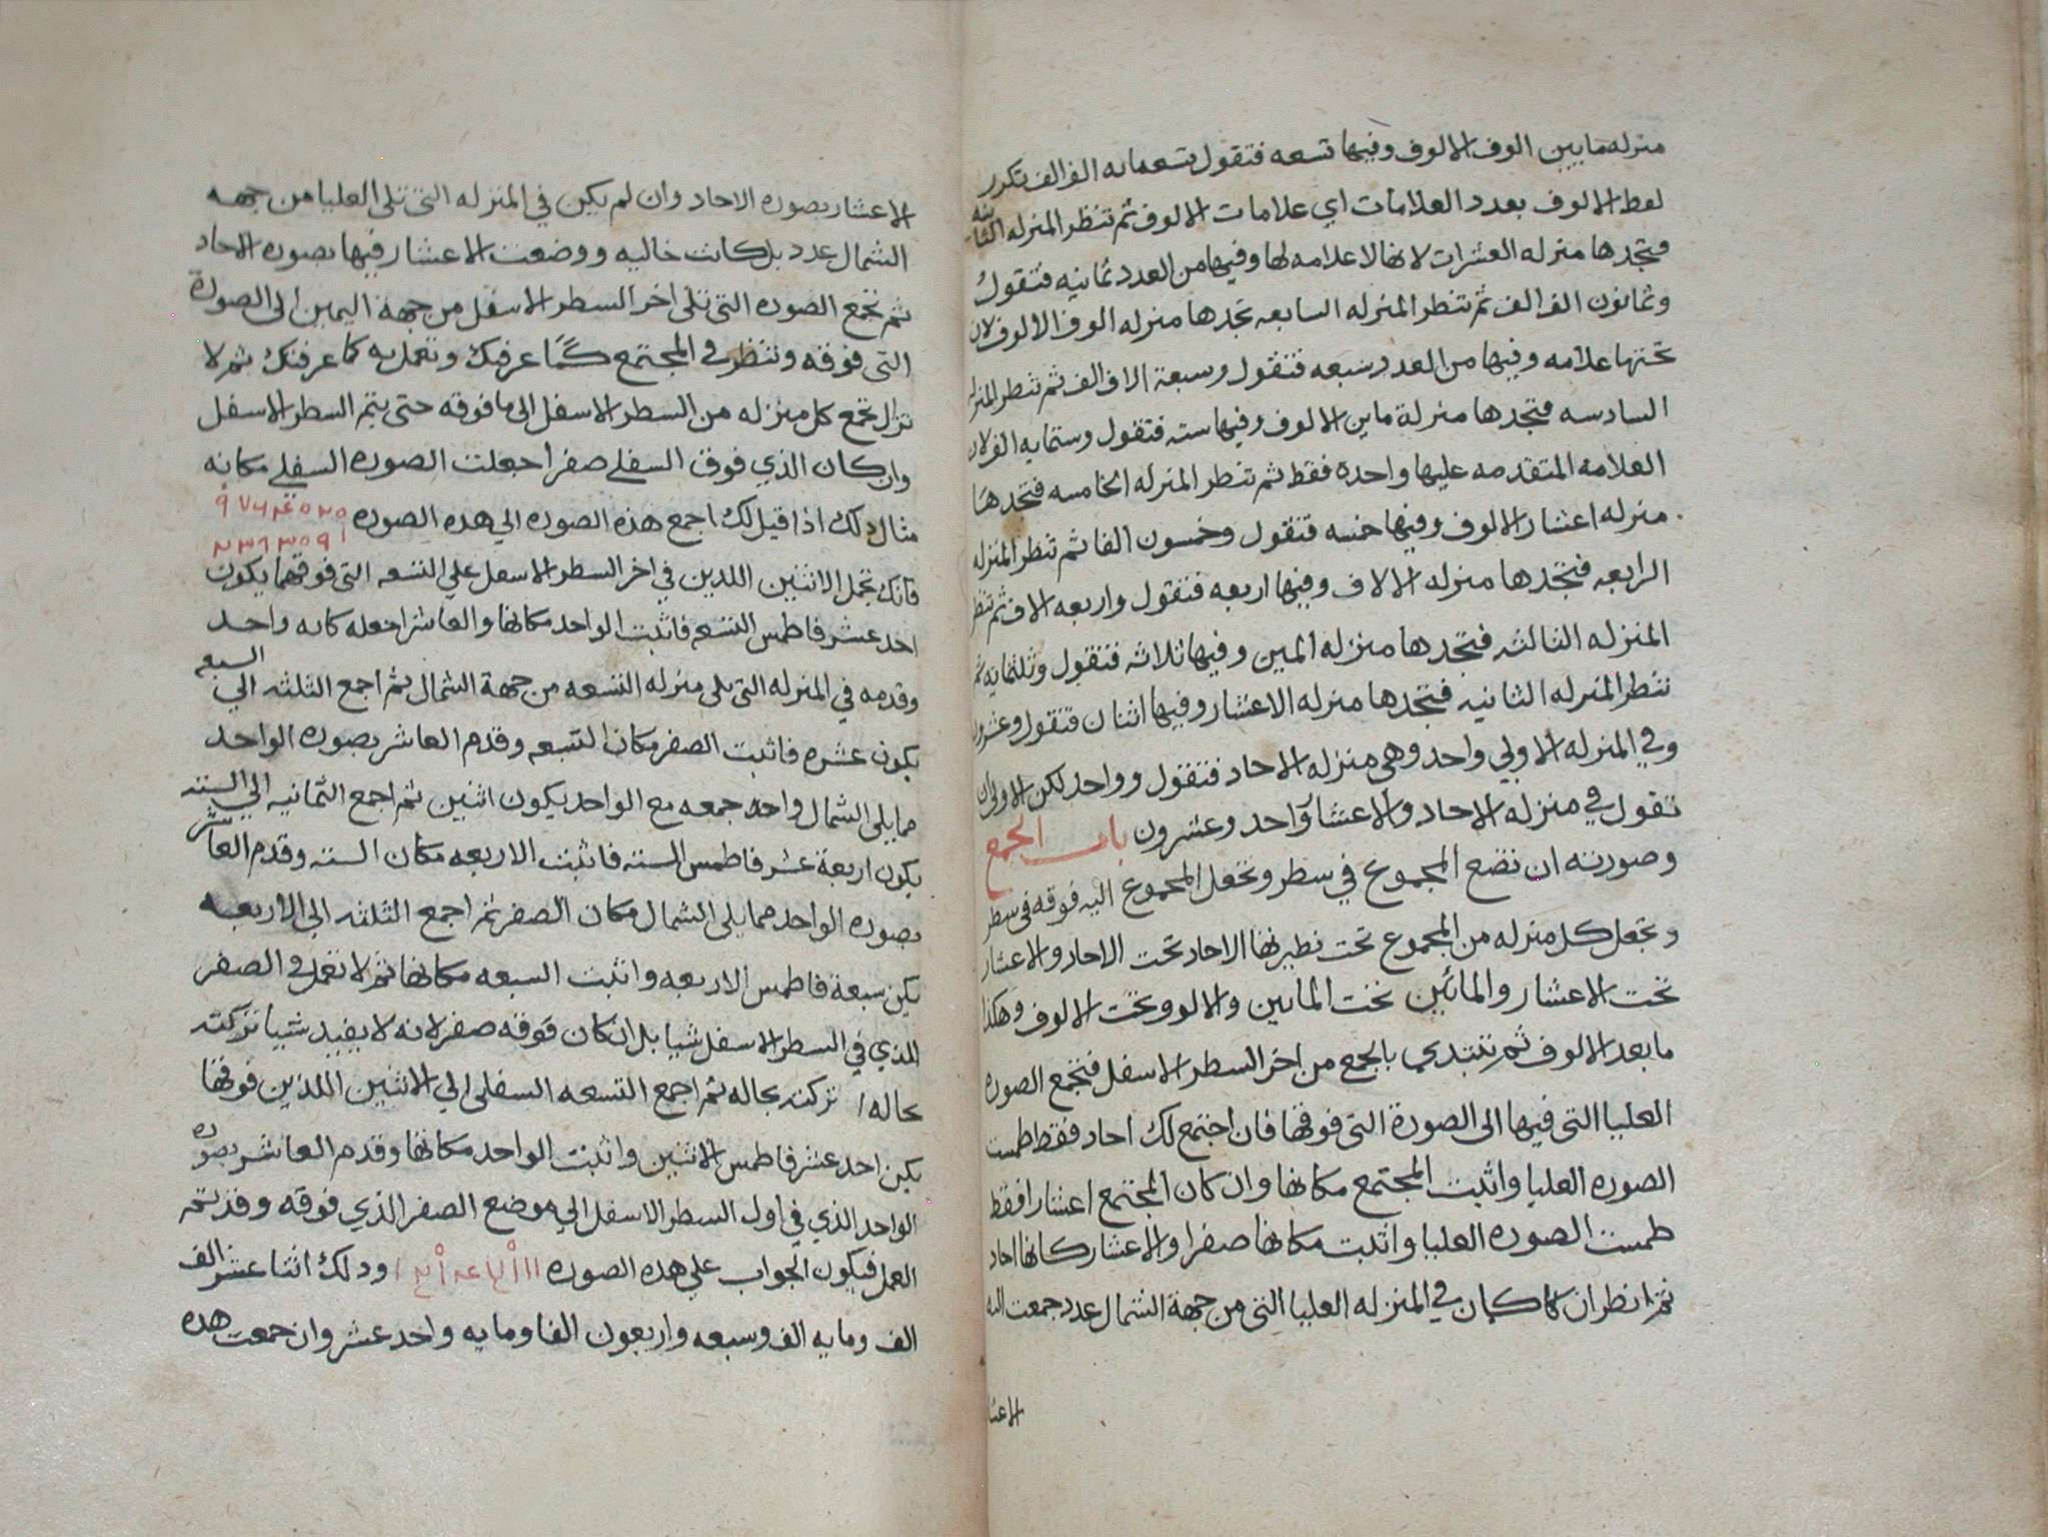 منزله مايين الوف الالوف وفيها تسعه فتقول تسعمايه الف الف تكرر
لفظ الالوف بعدد العلامات اي علامات الالوف ثم تنظر المنزله الثامنه
فتجدها منزله العشرات لانها لاعلامه لها وفيها من العدد ثمانيه فتقول
وثمانون الف الف ثم تنظر المنزله السابعه تجدها منزله الوف الالوف لان
تحتها علامه وفيها من العدد سبعه فتقول وسبعة الاف الف ثم تنظر المنزله
السادسه فتجدها منزلة ماين الالوف وفيها سته فتقول وستمايه الف لان
العلامه المتقدمه عليها واحدة فقط ثم تنظر المنزله الخامسه فتجدها
منزله اعشار الالوف وفيها خمسه فتقول وخمسون الفا ثم تنظر المنزله
الرابعه فتجدها منزله الالاف وفيها اربعه فتقول واربعه الاف ثم تنظر
المنزله الثالثه فتجدها منزله المين وفيها ثلاثه فتقول وثلثمايه ثم
تنظر المنزله الثانيه فتجدها منزله الاعشار وفيها اثنان فتقول وعشرون
وفي المنزله الاولي واحد وهي منزله الاحاد فتقول وواحد لكن الاولي ان
تقول في منزله الاحاد والاعشار واحد وعشرون باب الجمع
وصورته ان تضع المجموع في سطر وتجعل المجموع اليه فوقه في سطر
وتجعل كل منزله من المجموع تحت نظيرتها الاحاد تحت الاحاد والاعشار
تحت الاعشار والمائين تحت المايين والالوف وتحت الالوف وهكذا
مابعد الالوف ثم تبتدي بالجمع من اخر السطر الاسفل فتجمع الصوره
العليا التي فيها الى الصورة التي فوقها فان اجتمع لك احاد فقط طمست
الصوره العليا واثبت المجتمع مكانها وان كان المجتمع اعشارا فقط
طمست الصوره العليا واثبت مكانها صفرا والاعشار كانها احاد
ثم انظر ان كان في المنزله العليا التي من جهة الشمال عدد جمعت اليه
الاعشا
الاعشار بصوره الاحاد وان لم يكن في المنزله التي تلي العليا من جهه
الشمال عدد بل كانت خاليه ووضعت الاعشار فيها بصوره الاحاد
ثم تجمع الصوره التي تلي اخر السطر الاسفل من جهة اليمين الى الصورة
التي فوقه وتنظر في المجتمع كما عرفتك وتعمل به كما عرفتك ثم لا
تزال تجمع كل منزله من السطر الاسفل الى ما فوقه حتى يتم السطر الاسفل
وان كان الذي فوق السفلي صفرا جعلت الصوره السفلي مكانه
مثال ذلك اذا قيل لك اجمع هذه الصوره الي هذه الصوره
فانك تحمل الاثنين اللذين في اخر السطر الاسفل علي التسعه التي فوقهما يكون
احد عشر فاطمس التسعه فاثبت الواحد مكانها والعاشر اجعله كانه واحد
وقدمه في المنزله التي تلي منزله التسعه من جهة الشمال ثم اجمع الثلثه الي السبعه
يكون عشره فاثبت الصفر مكان السبعه وقدم العاشر بصوره الواحد
مما يلي الشمال واحد جمعه مع الواحد يكون اثنين ثم اجمع الثمانيه الي السته
يكون اربعة عشر فاطمس السته فاثبت الاربعه مكان السته وقدم العاشر
بصوره الواحد مما يلي الشمال مكان الصفر ثم اجمع الثلثه الي الاربعه
يكن سبعة فاطمس الاربعه واثبت السبعه مكانها ثم لا تعمل في الصفر
الذي في السطر الاسفل شيا بل ان كان فوقه صفر لانه لا يفيد شيا تركته
بحاله تركته بحاله ثم اجمع التسعه السفلي الي الاثنين اللذين فوقها
يكن احد عشر فاطمس الاثنين واثبت الواحد مكانها وقدم العاشر بصوره
الواحد الذي في اول السطر الاسفل الي موضع الصفر الذي فوقه وقد تم
العمل فيكون الجواب علي هذه الصوره وذلك اثنا عشر الف
الف ومايه الف وسبعه واربعون الفا ومايه واحد عشر وان جمعت هذه